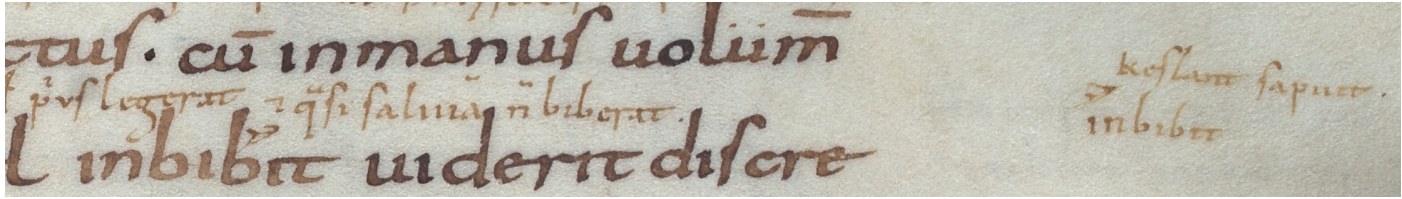 ctus. cū inmanus uolūm̄
p̄us legerat ⁊ q̄si saliuā n̄ biberat.
l inbib̓it uiderit discre
keslant sapuit.
inbibit